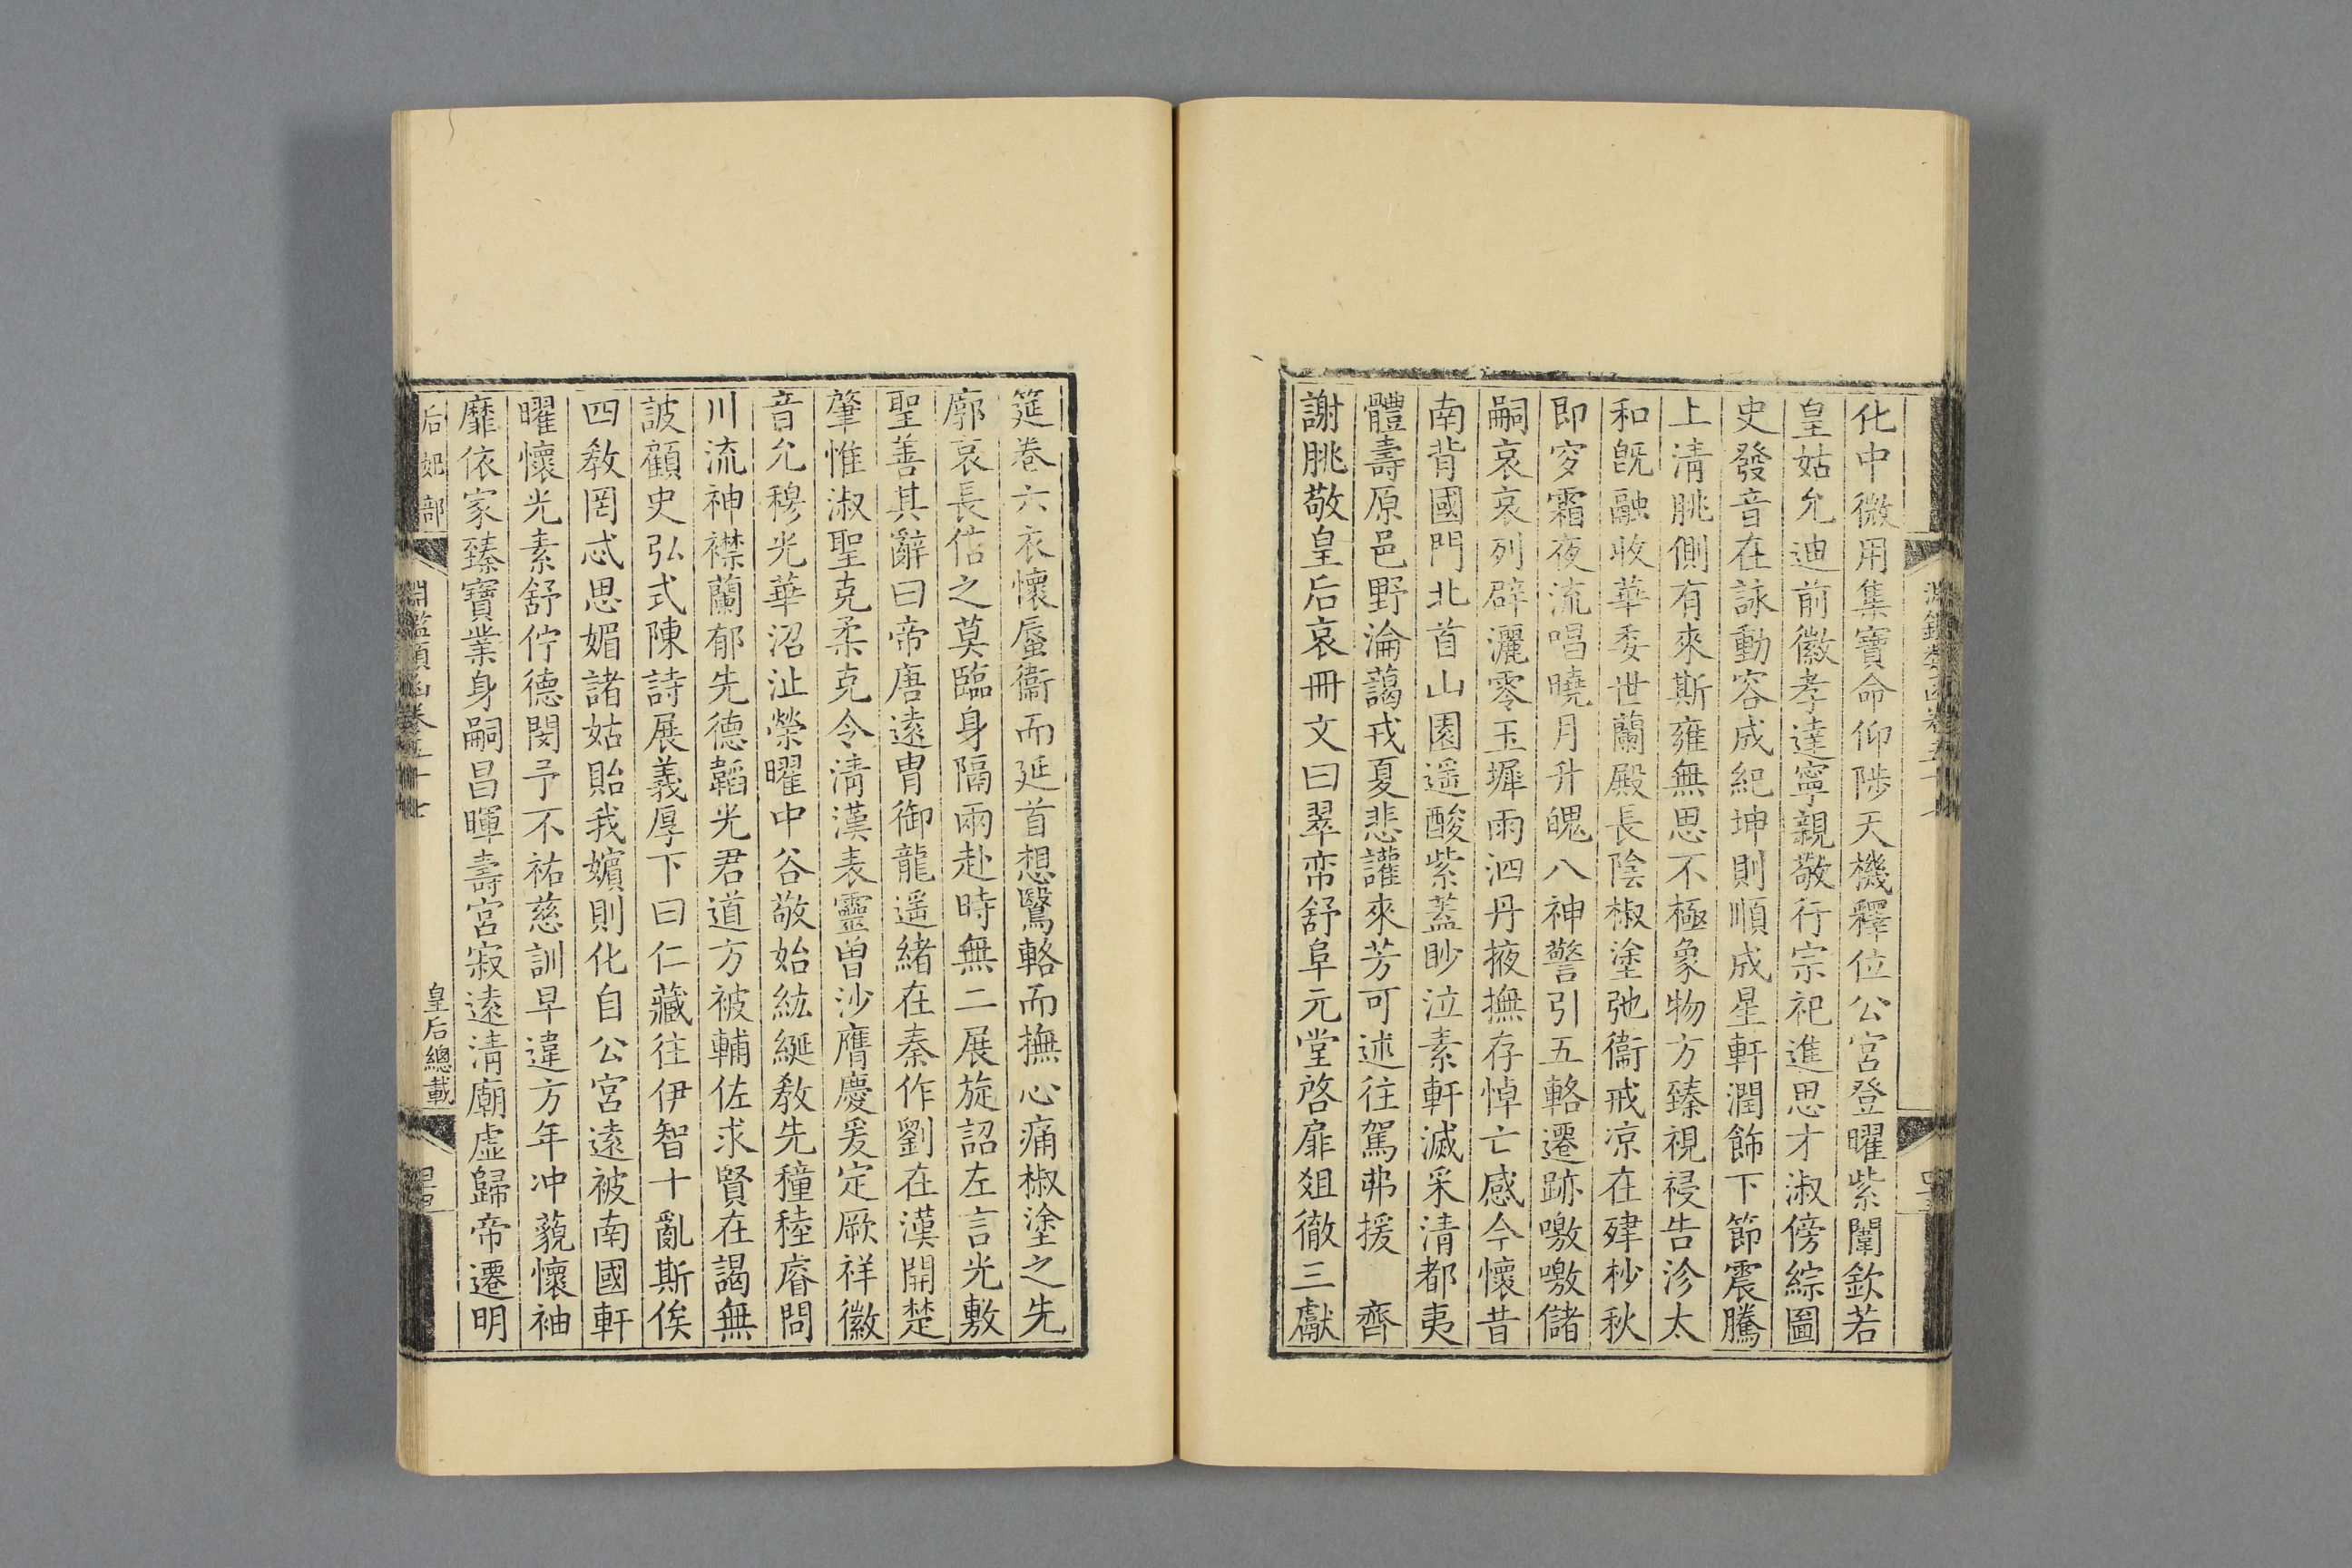 化中微用集寶命仰陟天機釋位公宮登曜紫闈欽若
皇姑允迪前徽孝達寧親敬行宗祀進思才淑傍綜圖
史發音在詠動容成紀坤則順成星軒潤飾下節震騰
上清朓側有來斯雍無思不極象物方臻視祲告沴太
和既融收華委世蘭殿長陰椒塗弛衞戒凉在肂杪秋
即穸霜夜流唱曉月升魄八神警引五輅遷跡噭噭儲
嗣哀哀列辟灑零玉墀雨泗丹掖撫存悼亡感今懷昔
南背國門北首山園遥酸紫蓋眇泣素軒滅采清都夷
體壽原邑野淪藹戎夏悲讙來芳可述往駕弗援 齊
謝朓敬皇后哀冊文曰翠帟舒阜元堂啓扉爼徹三獻
筵卷六衣懷蜃衞而延首想鷖輅而撫心痛椒塗之先
廓哀長信之莫臨身隔兩赴時無二展旋詔左言光敷
聖善其辭曰帝唐遠胄御龍遥緒在秦作劉在漢開楚
肇惟淑聖克柔克令清漢表靈曾沙膺慶爰定厥祥徽
音允穆光華沼沚榮曜中谷敬始紘綖敎先穜稑睿問
川流神襟蘭郁先德韜光君道方被輔佐求賢在謁無
詖顧史弘式陳詩展義厚下曰仁藏往伊智十亂斯俟
四敎罔忒思媚諸姑貽我嬪則化自公宮遠被南國軒
曜懷光素舒佇德閔予不祐慈訓早違方年冲藐懷袖
靡依家臻寶業身嗣昌暉壽宮寂遠清廟虛歸帝遷明
后妃部
淵鑑類函卷五十七
皇后總載